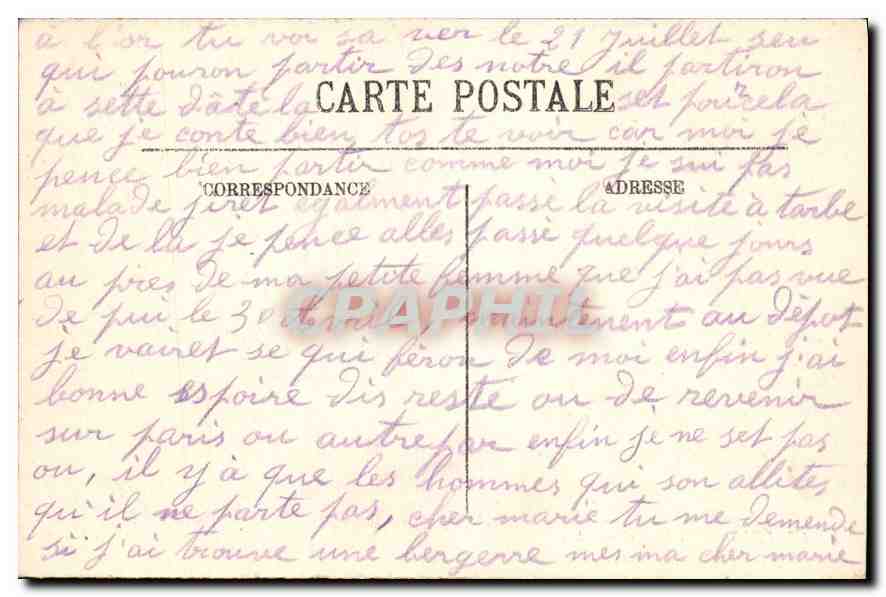 à l'or tu voi sa ver le 21 juillet seu
qui pouron partir des notre il partiron
à sette dâte la CARTE POSTALE set pour cela
que je conte bien tos te voir car moi je
pence bien partir comme moi je sui pas
CORRESPONDANCE ADRESSE
malade jiret égalment passé la visite à tarbe
et de la je pence alles passé quelque jours
au pres de ma petite femme que j'ai pas vue
de pui le 30 maintenent au dépot
CPAPHIL
je vairet se qui feron de moi enfin j'ai
bonne espoire dis reste ou de revenir
sur paris ou autrepar enfin je ne set pas
ou, il y à que les hommes qui son allités
qu'il ne parte pas, cher marie tu me demende
si j'ai trouve une bergerre mes ma cher marie